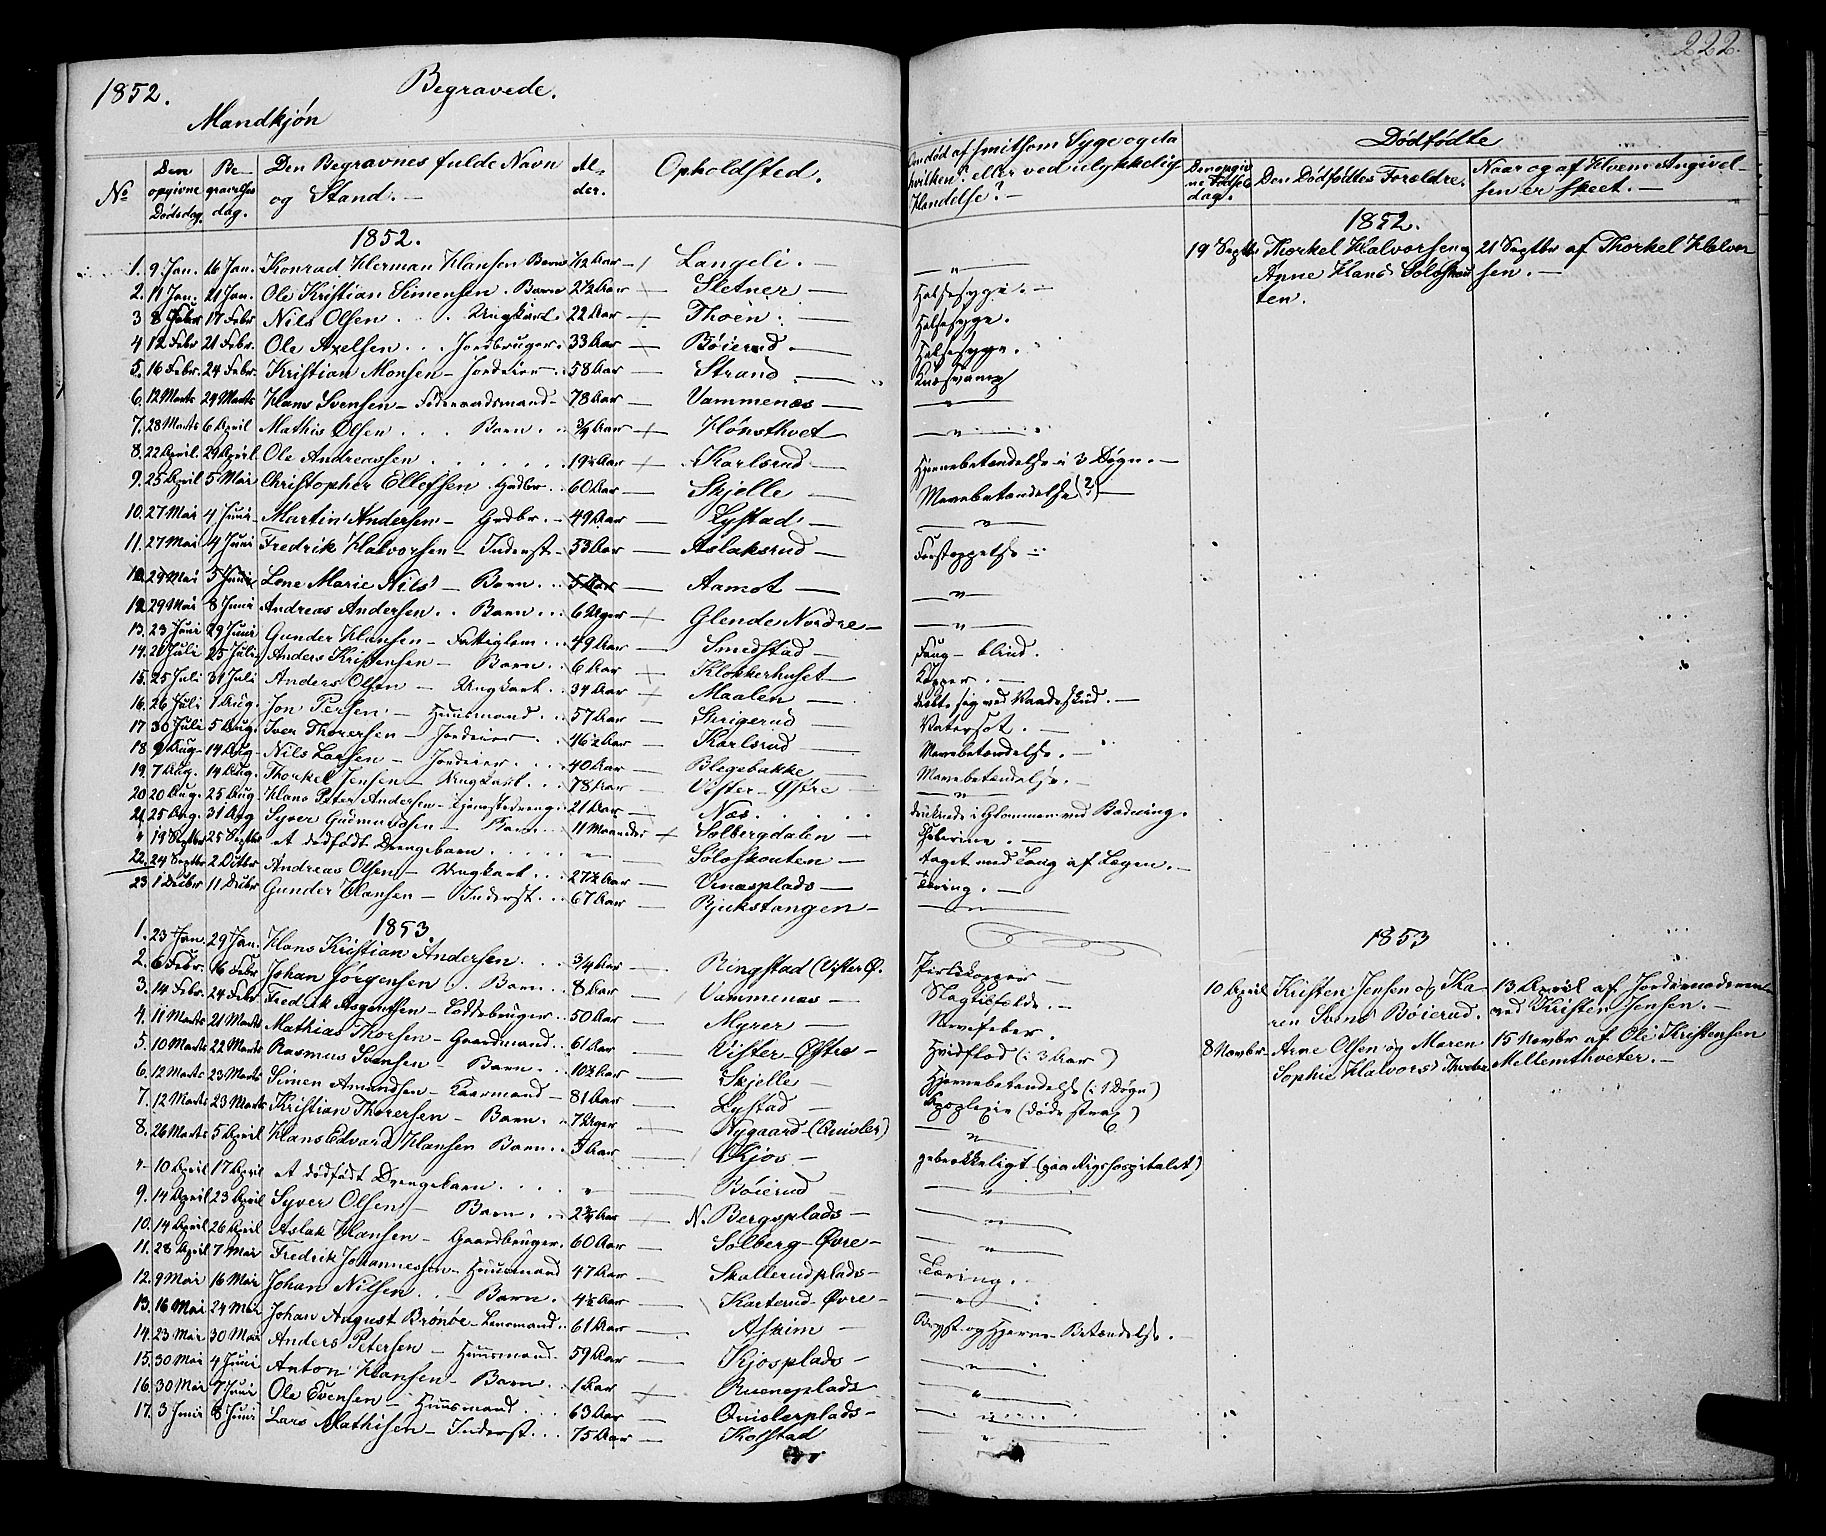 222.
1852.
Begravede.
Mandkjøn
No
Den opgivne Dødsdag.
Begravelses dag.
Den Begravnes fulde Navn og Stand. —
Alder.
Opholdsted.
Om død af smitsom Syge og da hvilken? eller ved ulykkelig Hændelse? —
Dødfødte
Den opgivne Fødselsdag.
Den Dødfødtes Forældre.
Naar og af Hvem Angivelsen er skeet. —
1852.
1. 9 Jan. 16 Jan. Konrad Herman Hansen Barn 1/12 Aar — Langeli. —
2. 11 Jan. 21 Jan. Ole Kristian Simensen. Barn 2½ Aar Sletner — Halsesyge. —
3 8 Febr 17 Febr Nils Olsen . . . Ungkarl. 22 Aar Thoen. — Halsesyge.
4 12 Febr 21 Febr. Ole Axelsen . . . Jordbruger. 33 Aar Bøierud. — Halsesyge.
5. 16 Febr. 24 Febr. Kristian Monsen — Jordeier. 58 Aar — Strand.
6. 12 Marts 24 Marts Hans Svensen — Føderaadsmand — 78 Aar — Vammenæs —
7. 28 Marts 6 April Mathis Olsen . . . Barn . . ¾ Aar Hønsthvet
8. 22 April. 29 April. Ole Andreassen . . . . . 19½ Aar Karlsrud — Hjernebetændelse i 3 Døgn. —
9. 25 April 5 Mai Christopher Ellefsen. Gdbr. . . 60 Aar — Skjelle — Mavebetændelse (?) —
10. 27 Mai 4 Juni Martin Andersen — Gdbr. — 49 Aar — Lystad —
11. 27 Mai 4 Juni Fredrik Halvorsen — Inderst — 53 Aar — Aslaksrud — Forstoppelse
12 29 Mai 5 Juni Lene Marie Nils' — Barn . . 5 Aar — Aamot —
12 29 Mai 8 Juni Andreas Andersen . . Barn . . 6 Uger Glende Nordre —
13. 23 Juni 29 Juni Gunder Hansen — Fattiglem . . 49 Aar — Smedstad — Taug — blind.
14. 20 Juli 25 Juli Anders Kristensen — Barn . . 6 Aar Klokkerhuset Kopper. —
15. 25 Juli 31 Juli Anders Olsen — Ungkarl . . 34 Aar Maalen — dræbte sig ved Vaadeskud. —
16. 26 Juli 1 Aug. Jon Persen — Huusmand . . 57 Aar — Skrigerud — Vatersot. —
17. 30 Juli 5 Aug. Iver Thorersen — Jordeier. . 46½ Aar — Karlsrud — Mavebetændelse. —
18. 9 Aug. 14 Aug. Nils Larsen — Jordeier. . . 40 Aar — Blegebakke — Mavebetændelse. —
19. 7 Aug. 14 Aug. Thorkel Jensen — Ungkarl. . 78 Aar — Vister-Østre —
20 20 Aug. 25 Aug. Hans Peter Andersen — Tjenestedreng. 21 Aar — Næs. druknede i Glommen ved Badning.
21 25 Aug. 31 Aug Syver Gudmundsen — Barn . . 11 Maaneder Solbergdalen —
" 19 Septbr 25 Septbr et dødfødt Drengebarn . . . . . — Soloskouten — taget med Tang af Lægen. —
22. 24 Septbr 2 Octbr Andreas Olsen — Ungkarl . . 27½ Aar — Vinæsplads — Tæring. —
23 1 Decbr 11 Decbr Gunder Hansen — Inderst . . . 67 Aar — Rjukstangen —
1852.
19 Septbr Thorkel Halvorsen og Anne Hans' Soloskouten.
21 Septbr af Thorkel Halvorsen. —
1853
1. 23 Jan. 29 Jan. Hans Kristian Andersen . . . ¾ Aar — Ringstad (Vister Ø.
2. 6 Febr. 16 Febr Johan Jørgensen . . Barn . . 8 Aar — Vammenæs —
3. 14 Febr. 24 Febr Fredrik Asgautsen — Løddebruger. 50 Aar — Myrer — Nervefeber.
4. 11 Marts 21 Marts Mathias Thorsen — Gaardmand . . 61 Aar — Vister-Østre — Hvidflod (i 3 Aar)
5. 10 Marts 22 Marts Rasmus Svensen — Barn . . 10½ Aar — Skjelle Hjernebetændelse (i 1 Døgn)
6. 12 Marts 23 Marts Simen Amundsen — Kaarmand — 81 Aar — Lystad — Apoplexie (døde strax)
7. 12 Marts 23 Marts Kristian Thorersen — Barn . . 7 Uger — Nygaard (Qvisler)
8. 26 Marts 5 April Hans Edvard Hansen Barn . . 5 Aar Kjos — gebrækkeligt (paa Rigshospitalet)
" 10 April 17 April et dødfødt Drengebarn . . . . — Bøierud —
9. 14 April 23 April Syver Olsen — Barn . . 2¾ Aar — N. Bergsplads —
10. 14 April 26 April Aslak Hansen — Gaardbruger. 60 Aar — Solberg-Øvre —
11. 28 April 7 Mai Fredrik Johannessen — Huusmand 47 Aar — Skallerudplads — Tæring. —
12. 9 Mai 16 Mai Johan Nilsen . . — Barn. 4½ Aar — Karterud-Øvre —
13. 16 Mai 24 Mai Johan August Brønøe — Lensmand. 61 Aar — Askim — Bryst- og Hjerne-Betændelse. —
14. 23 Mai 30 Mai Anders Petersen — Huusmand — 59 Aar — Kjosplads —
15. 30 Mai 4 Juni Anton Hansen — Barn . . 1 Aar Rueneplads
16. 30 Mai 7 Juni Ole Evensen — Huusmand . . 63 Aar — Qvislerplads —
17. 3 Juni 8 Juni Lars Mathisen — Inderst . . . 75 Aar — Kolstad
1853
10 April Kristen Jensen og Karen Svens' Bøierud.
13 April af Jordemoderen ved Kristen Jensen. —
8 Novbr Arne Olsen og Maren Sophie Halvors'
15 Novbr af Ole Kristensen Mellemthveter. —